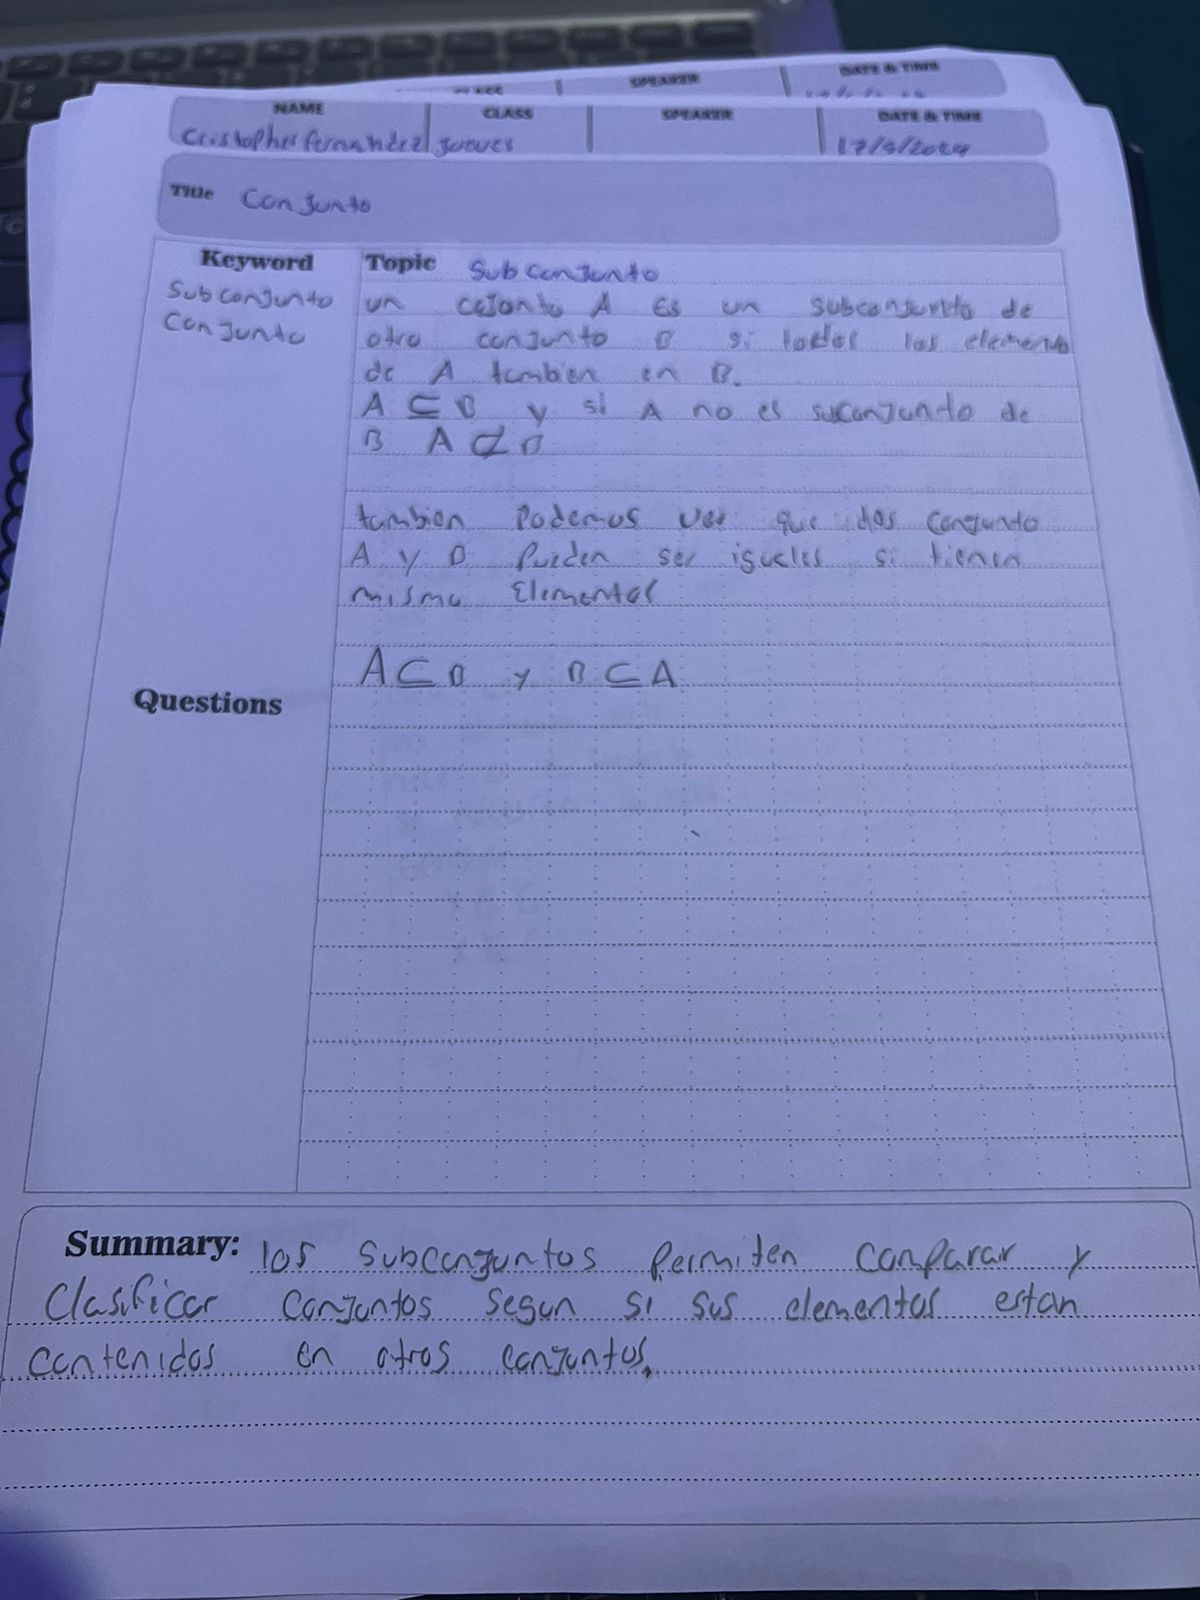 SPEAKER DATE & TIME
NAME CLASS SPEAKER DATE & TIME
Cristopher Fernandez Jueves
Title Conjunto
Keyword Topic Subconjunto
Subconjunto
Conjunto
un A Es un subconjunto de
otro conjunto B si todos los elementos
de A tambien en B.
A ⊆ B y si A no es suconjunto de
B A ⊄ B
tambien Podemos ver que dos conjunto
A y B Pueden ser iguales si tienen
misma Elementos
A ⊆ B y B ⊆ A
Questions
Summary: los Subconjuntos Permiten comparar y
Clasificar conjuntos segun si sus elementos estan
contenidos en otros conjuntos.